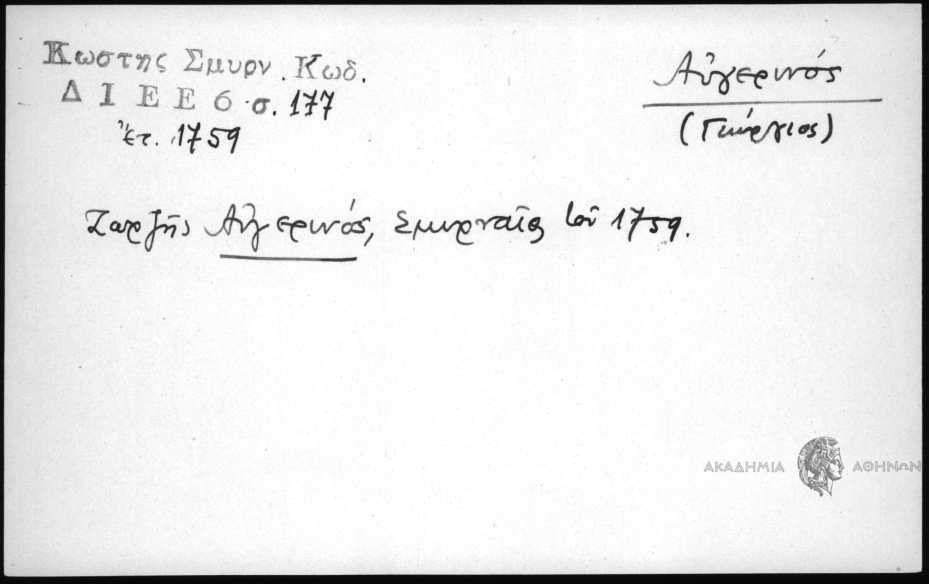 Κωστης Σμυρν. Κωδ.
Δ Ι Ε Ε 6 σ. 177
ἔτ. 1759
Αὐγερινός
(Γεώργιος)
Ζωρζῆς Αὐγερινός, Σμυρναῖος τοῦ 1759.
ΑΚΑΔΗΜΙΑ ΑΘΗΝΩΝ